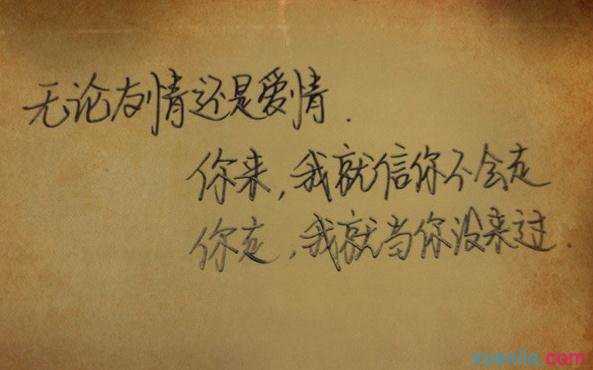 无论友情还是爱情.
你来,我就信你不会走
你走,我就当你没来过.